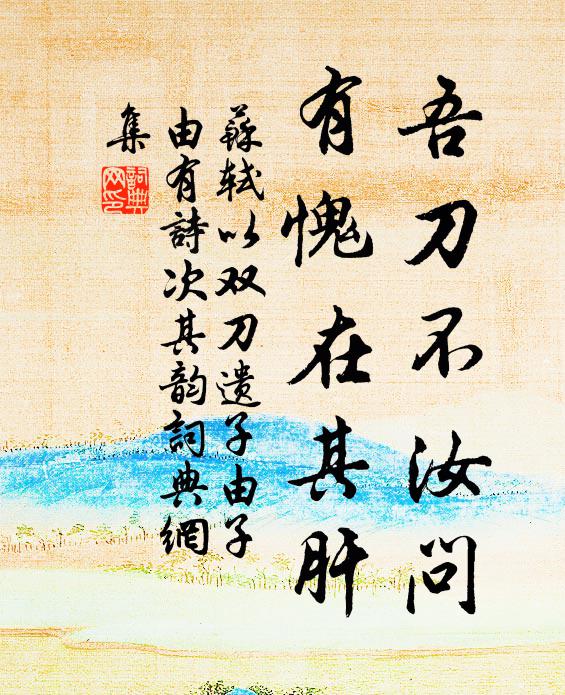 吾刀不汝问
有愧在其肝
蘇轼以双刀遗子由子
由有詩次其韵詞典網
集
詞典
网印